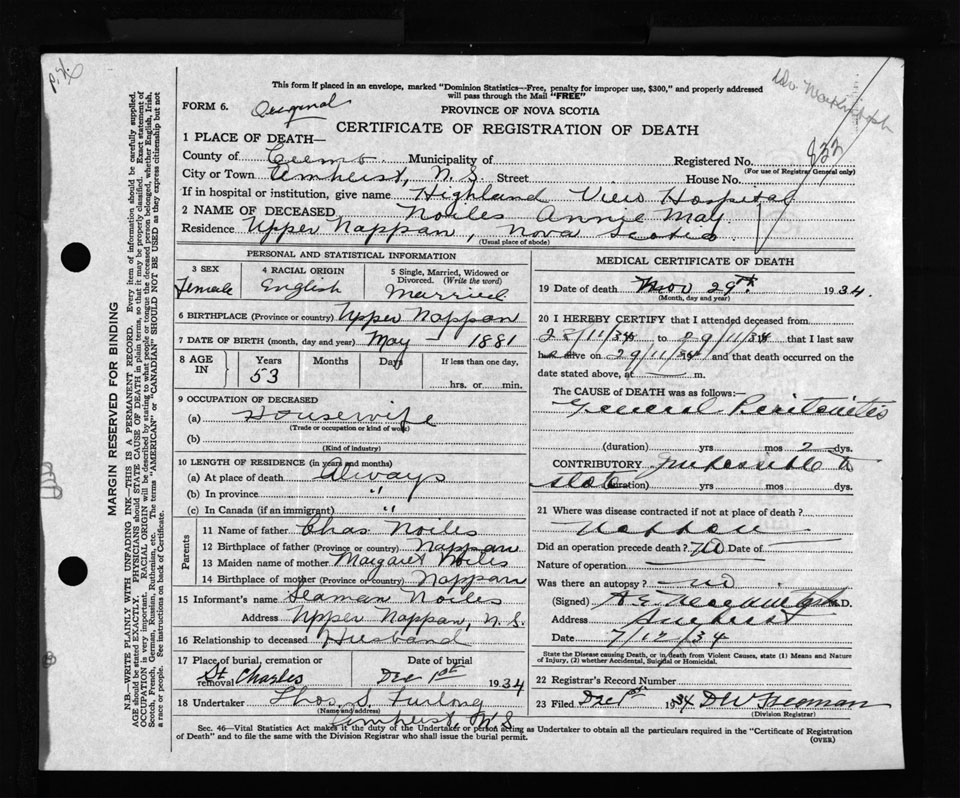 This form if placed in an envelope, marked "Dominion Statistics—Free, penalty for improper use, $300," and properly addressed
will pass through the Mail "FREE"
FORM 6. Original
PROVINCE OF NOVA SCOTIA
CERTIFICATE OF REGISTRATION OF DEATH
1 PLACE OF DEATH—
County of Municipality of Registered No. 833
(For use of Registrar General only)
City or Town Amherst, N.S. Street House No.
If in hospital or institution, give name Highland View Hospital
2 NAME OF DECEASED Noiles Annie May.
Residence Upper Nappan, Nova Scotia
(Usual place of abode)
PERSONAL AND STATISTICAL INFORMATION
3 SEX
Female
4 RACIAL ORIGIN
English
5 Single, Married, Widowed or
Divorced. (Write the word)
Married
6 BIRTHPLACE (Province or country) Upper Nappan
7 DATE OF BIRTH (month, day and year) May — 1881
8 AGE IN
Years
53
Months
Days
If less than one day,
hrs. or min.
9 OCCUPATION OF DECEASED
(a) Housewife
(Trade or occupation or kind of work)
(b)
(Kind of industry)
10 LENGTH OF RESIDENCE (in years and months)
(a) At place of death Always
(b) In province "
(c) In Canada (if an immigrant) "
Parents
11 Name of father Chas Noiles
12 Birthplace of father (Province or country) Nappan
13 Maiden name of mother Margaret Noiles
14 Birthplace of mother (Province or country) Nappan
15 Informant's name Seaman Noiles
Address Upper Nappan, N.S.
16 Relationship to deceased Husband
17 Place of burial, cremation or
removal St. Charles
Date of burial
Dec 1st 1934
18 Undertaker Thos. S. Furlong
(Name and address)
Amherst N S
MEDICAL CERTIFICATE OF DEATH
19 Date of death Nov 29th 1934.
(Month, day and year)
20 I HEREBY CERTIFY that I attended deceased from
28/11/34 to 29/11/34 that I last saw
alive on 29/11/34 and that death occurred on the
date stated above, at m.
The CAUSE OF DEATH was as follows:—
General Peritonitis
(duration) yrs mos 2 dys.
CONTRIBUTORY Impossible to
state (duration) yrs mos dys.
21 Where was disease contracted if not at place of death?
Nappan
Did an operation precede death? No Date of
Nature of operation
Was there an autopsy? no
(Signed) M.D.
Address Amherst
Date 7/12/34
State the Disease causing Death, or in death from Violent Causes, state (1) Means and Nature
of Injury, (2) whether Accidental, Suicidal or Homicidal.
22 Registrar's Record Number
23 Filed Dec 1st 1934
(Division Registrar)
Sec. 46—Vital Statistics Act makes it the duty of the Undertaker or person acting as Undertaker to obtain all the particulars required in the "Certificate of Registration
of Death" and to file the same with the Division Registrar who shall issue the burial permit.
(OVER)
MARGIN RESERVED FOR BINDING
N.B.—WRITE PLAINLY WITH UNFADING INK—THIS IS A PERMANENT RECORD. Every item of information should be carefully supplied.
AGE should be stated EXACTLY. PHYSICIANS should STATE CAUSE OF DEATH in plain terms, so that it may be properly classified. Exact statement of
OCCUPATION is very important. RACIAL ORIGIN will be described by stating to what people or race the deceased person belonged, whether English, Irish,
Scotch, French, German, Russian, Ruthenian, etc. The terms "AMERICAN" or "CANADIAN" SHOULD NOT BE USED as they express citizenship but not
a race or people. See instructions on back of Certificate.